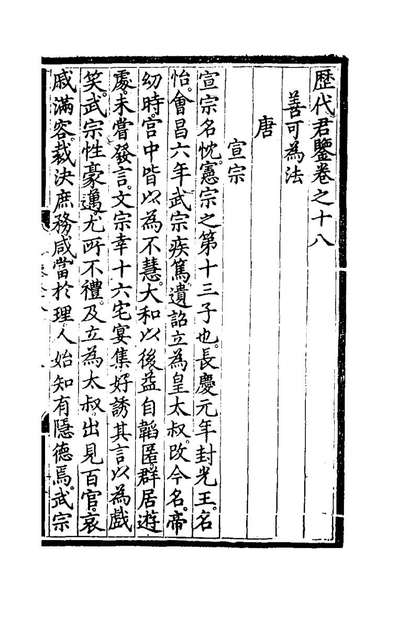 歴代君鑒卷之十八
善可為法
唐
宣宗
宣宗名忱憲宗之第十三子也長慶元年封光王名
怡會昌六年武宗疾篤遺詔立為皇太叔改今名帝
幼時宮中皆以為不慧大和以後益自韜匿群居遊
處未嘗發言文宗幸十六宅宴集好誘其言以為戲
笑武宗性豪邁尤所不禮及立為太叔出見百官哀
戚滿容裁決庶務咸當於理人始知有隱德焉武宗